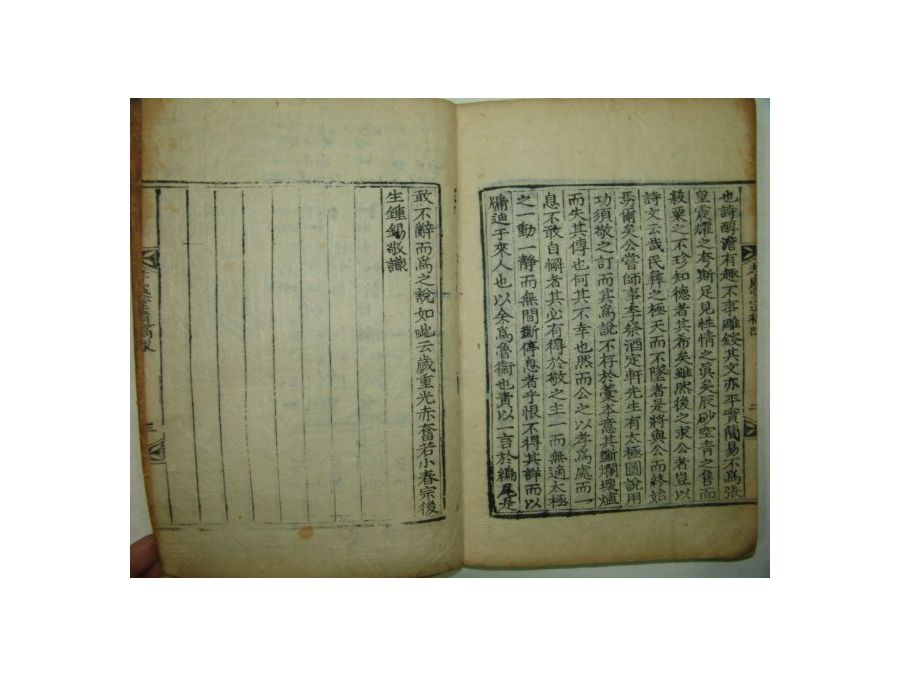 也詩醇澹有趣不事雕鎪其文亦平實簡易不爲張
皇震耀之夸斯足見性情之眞矣辰砂空青之售而
菽粟之不珍知德者其希矣雖然後之求公者豈以
詩文云哉民彝之極天而不墜者是將與公而終始
焉爾矣公嘗師事李祭酒定軒先生有太極圖說用
功須敬之訂而其爲說不存於藁本意其斷爛壞爐
而失其傳也何其不幸也然而公之以孝爲處而一
息不敢自懈者其必有得於敬之主一而無適太極
之一動一靜而無間斷停息者乎恨不得其詳而以
牖迪于來人也以余爲魯衛也責以一言於編尾是
敢不辭而爲之說如此云歲重光赤奮若小春宗後
生鍾錫敬識